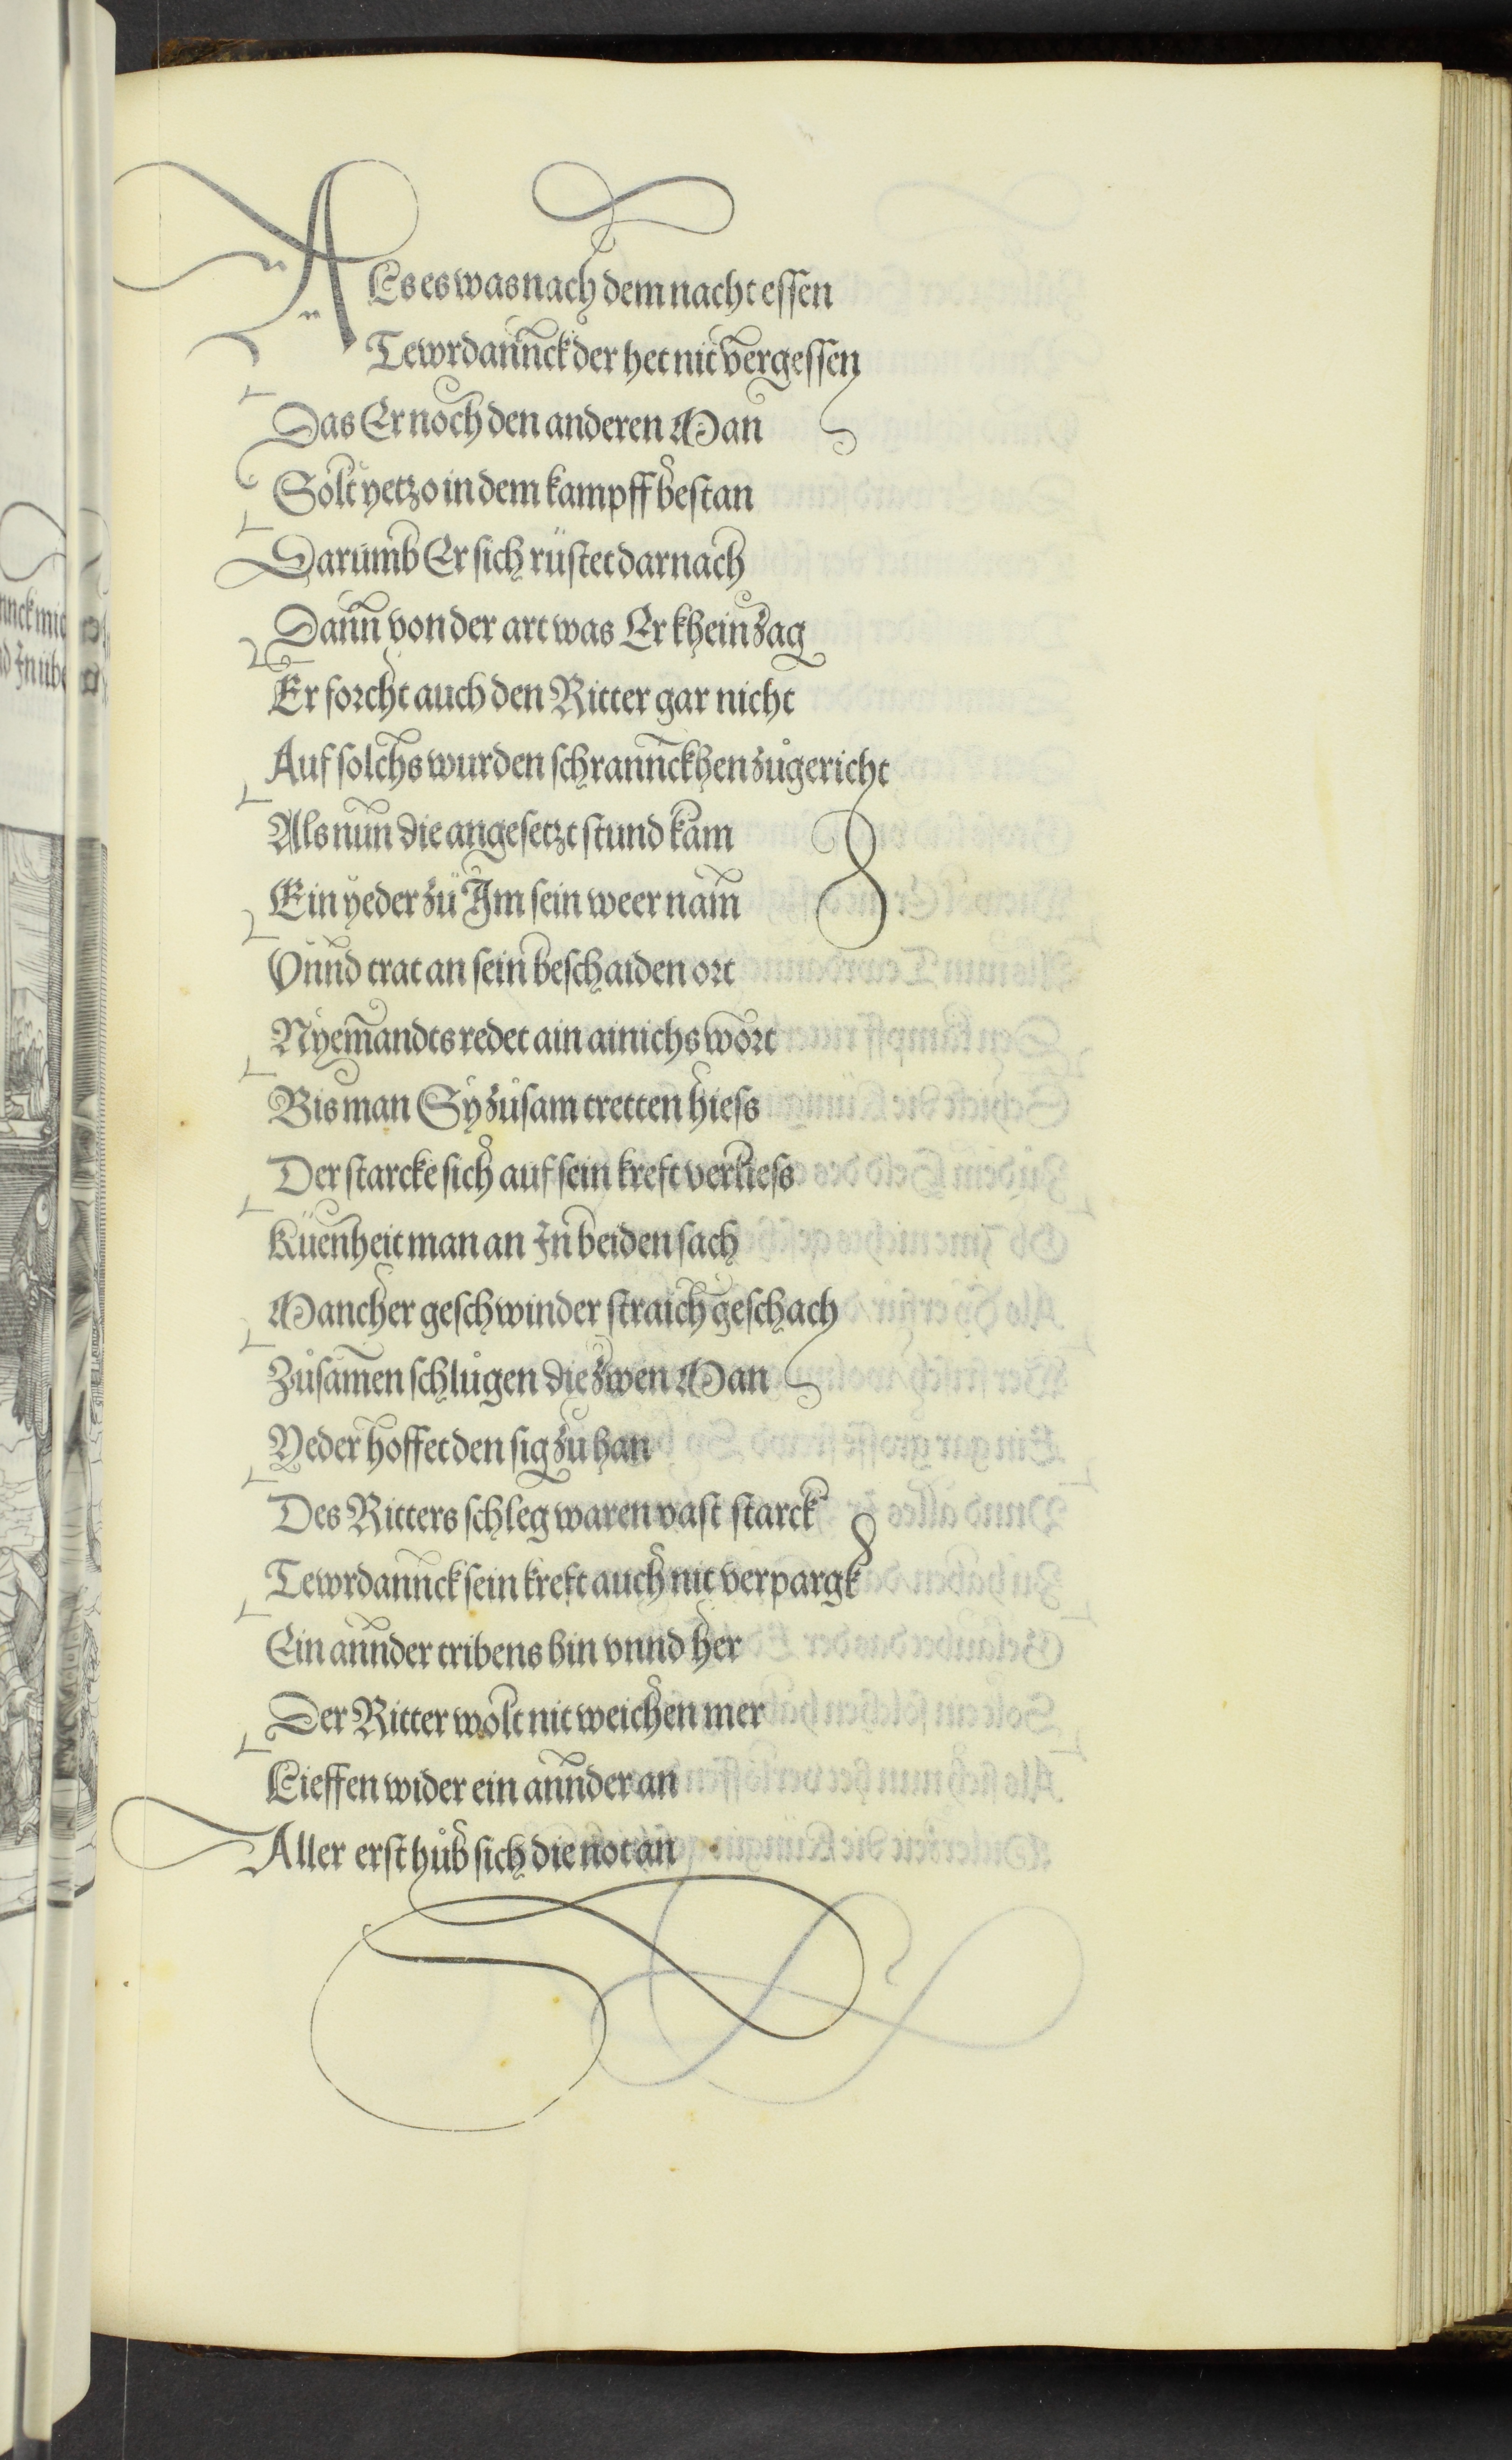 ALs es was nach dem nacht essen
Tewrdannck der het nit vergessen
Das Er noch den anderen Man
Solt yetzo in dem kampff bestan
Darumb Er sich rüstet darnach
Dann von der art was Er khein zag
Er forcht auch den Ritter gar nicht
Auf solchs wurden schrannckhen zůgericht
Als nun die angesetzt stund kam
Ein yeder zü Im sein weer nam
Vnnd trat an sein beschaiden ort
Nyemandts redet ain ainichs wort
Bis man Sy zůsam tretten hiess
Der starcke sich auf sein kreft verliess
Küenheit man an In beiden sach
Mancher geschwinder straich geschach
Zůsamen schlůgen die zwen Man
Yeder hoffet den sig zu han
Des Ritters schleg waren vast starck
Tewrdannck sein kreft auch nit verpargk
Ein annder tribens hin vnnd her
Der Ritter wolt nit weichen mer
Lieffen wider ein annder an
Aller erst hůb sich die not an